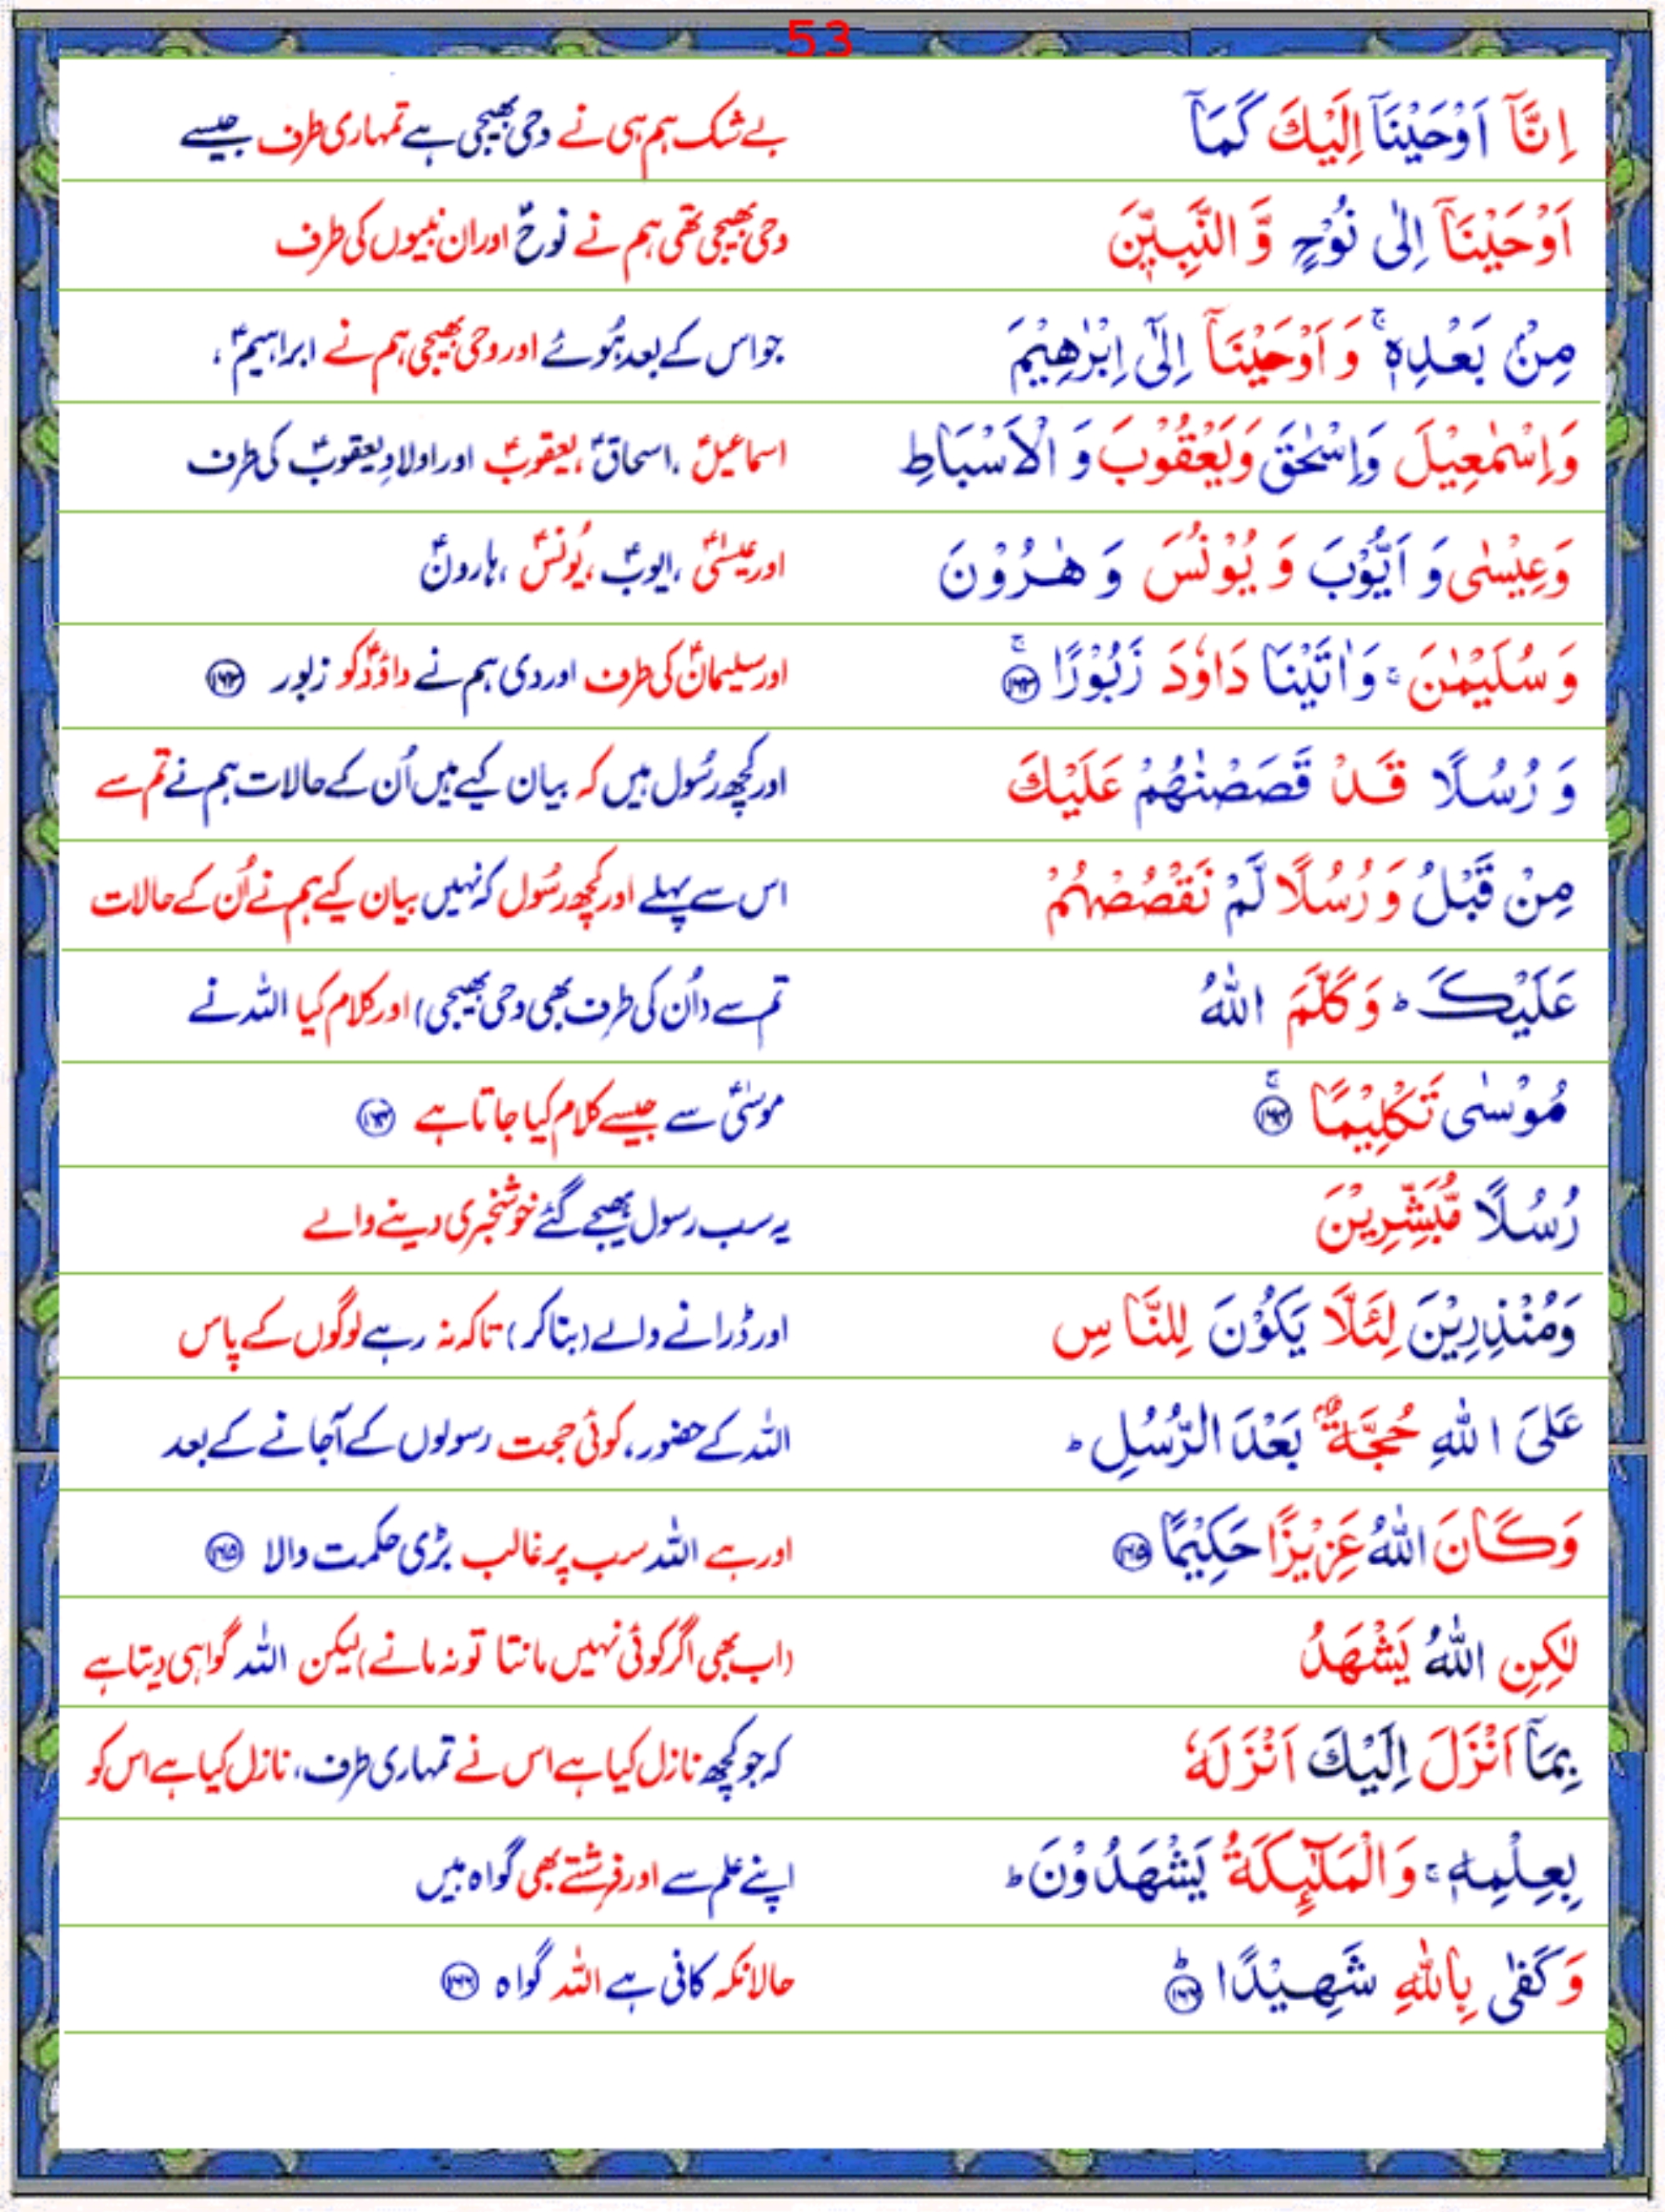 53
اِنَّاۤ اَوْحَيْنَاۤ اِلَيْكَ كَمَاۤ بے شک ہم ہی نے وحی بھیجی ہے تمہاری طرف جیسے
اَوْحَيْنَاۤ اِلٰى نُوْحٍ وَّ النَّبِيّٖنَ وحی بھیجی تھی ہم نے نوحؑ اور ان نبیوں کی طرف
مِنْۢ بَعْدِهٖ ۚ وَ اَوْحَيْنَاۤ اِلٰۤى اِبْرٰهِيْمَ جو اس کے بعد ہُوئے اور وحی بھیجی ہم نے ابراہیمؑ ،
وَاِسْمٰعِيْلَ وَاِسْحٰقَ وَيَعْقُوْبَ وَ الْاَسْبَاطِ اسماعیلؑ ،اسحاقؑ ،یعقوبؑ اور اولادِ یعقوبؑ کی طرف
وَعِيْسٰى وَ اَيُّوْبَ وَ يُوْنُسَ وَ هٰرُوْنَ اور عیسٰیؑ ،ایوبؑ ،یُونسؑ ،ہارونؑ
وَ سُلَيْمٰنَ ۚ وَاٰتَيْنَا دَاوٗدَ زَبُوْرًا ۚ ﴿۱۶۳﴾ اور سلیمانؑ کی طرف اور دی ہم نے داؤدؑ کو زبور ﴿۱۶۳﴾
وَ رُسُلًا قَدْ قَصَصْنٰهُمْ عَلَيْكَ اور کچھ رسُول ہیں کہ بیان کیے ہیں اُن کے حالات ہم نے تم سے
مِنْ قَبْلُ وَ رُسُلًا لَّمْ نَقْصُصْهُمْ اس سے پہلے اور کچھ رسُول کہ نہیں بیان کیے ہم نے اُن کے حالات
عَلَيْكَ ؕ وَ كَلَّمَ اللّٰهُ تم سے (اُن کی طرف بھی وحی بھیجی) اور کلام کیا اللہ نے
مُوْسٰى تَكْلِيْمًا ۚ ﴿۱۶۴﴾ موسٰیؑ سے جیسے کلام کیا جاتا ہے ﴿۱۶۴﴾
رُسُلًا مُّبَشِّرِيْنَ یہ سب رسول بھیجے گئے خوشخبری دینے والے
وَمُنْذِرِيْنَ لِئَلَّا يَكُوْنَ لِلنَّاسِ اور ڈرانے والے (بنا کر) تاکہ نہ رہے لوگوں کے پاس
عَلَى اللّٰهِ حُجَّةٌۢ بَعْدَ الرُّسُلِ ؕ اللہ کے حضور، کوئی حجت رسولوں کے آجانے کے بعد
وَكَانَ اللّٰهُ عَزِيْزًا حَكِيْمًا ﴿۱۶۵﴾ اور ہے اللہ سب پر غالب بڑی حکمت والا ﴿۱۶۵﴾
لٰكِنِ اللّٰهُ يَشْهَدُ (اب بھی اگر کوئی نہیں مانتا تو نہ مانے) لیکن اللہ گواہی دیتا ہے
بِمَاۤ اَنْزَلَ اِلَيْكَ اَنْزَلَهٗ کہ جو کچھ نازل کیا ہے اس نے تمہاری طرف، نازل کیا ہے اس کو
بِعِلْمِهٖ ۚ وَ الْمَلٰٓئِكَةُ يَشْهَدُوْنَ ؕ اپنے علم سے اور فرشتے بھی گواہ ہیں
وَ كَفٰى بِاللّٰهِ شَهِيْدًا ؕ ﴿۱۶۶﴾ حالانکہ کافی ہے اللہ گواہ ﴿۱۶۶﴾